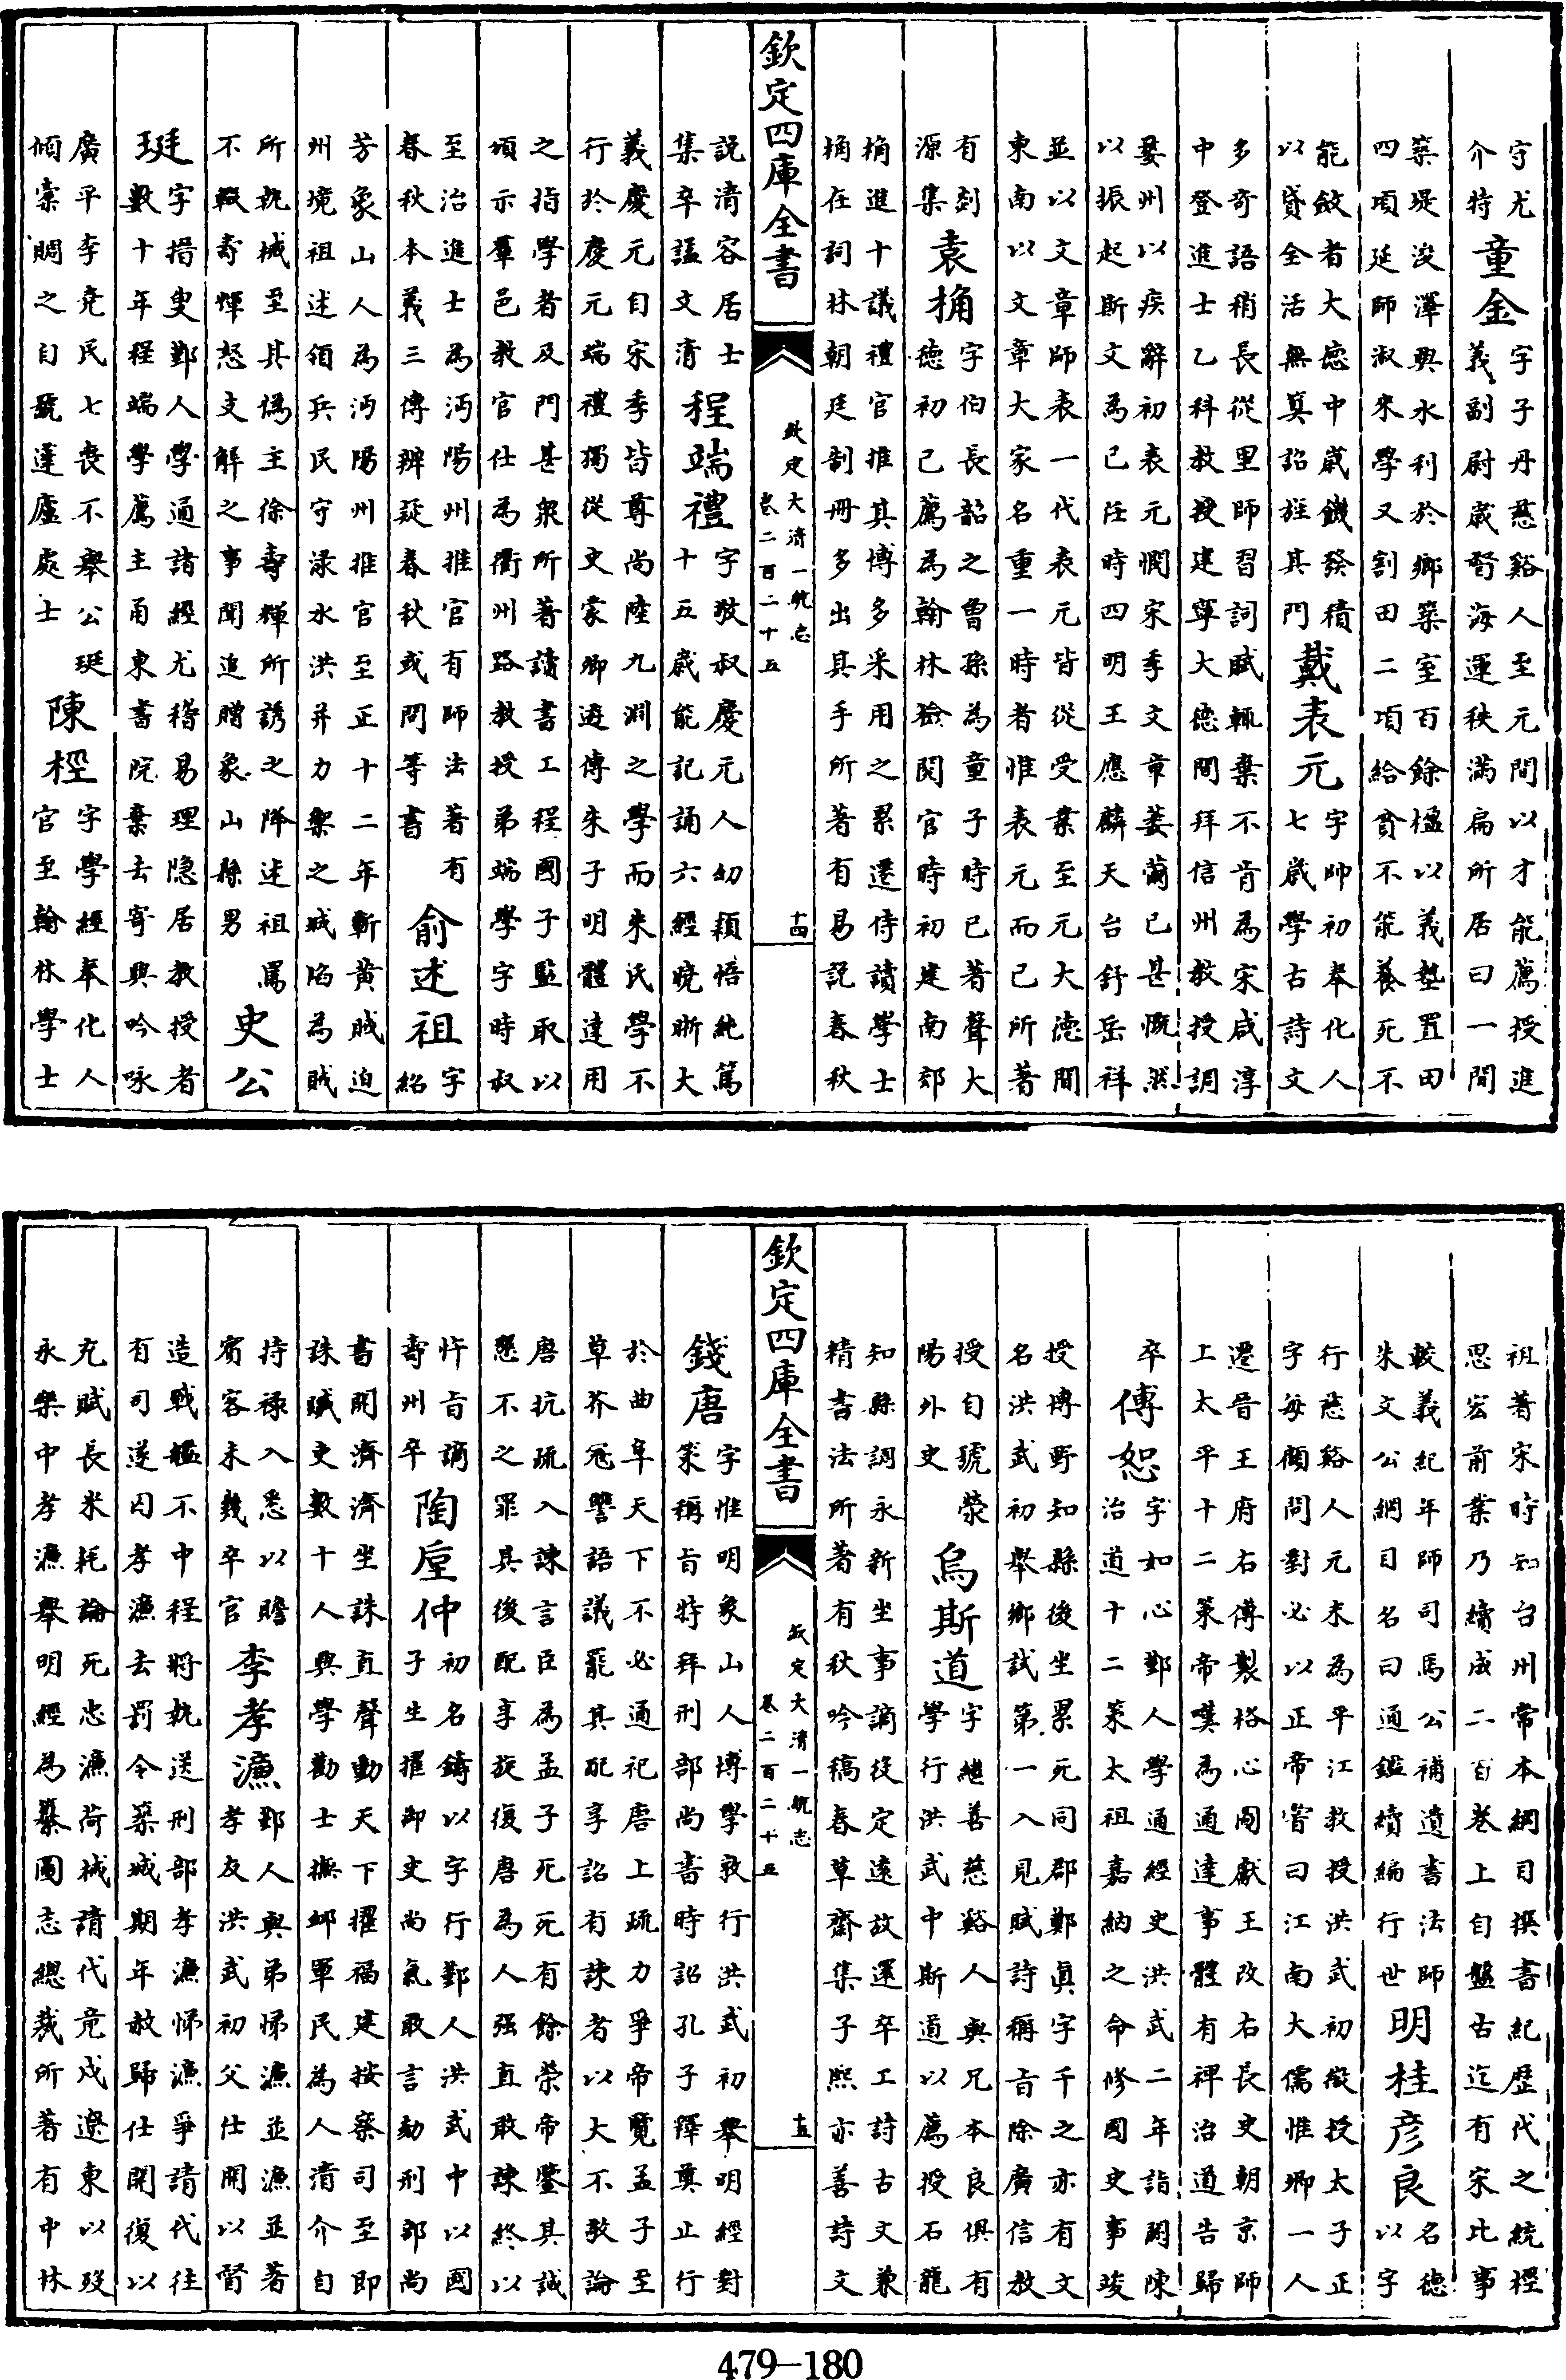 守尤介特童金字子丹慈谿人至元間以才能薦授進義副尉嵗督海運秩滿扁所居曰一間
築堤浚澤興水利於鄉築室百餘楹以義塾置田四項延師淑來學又割田二項給貧不能養死不
能斂者大德中嵗饑發積以貸全活無算詔旌其門戴表元字帥初奉化人七嵗學古詩文
多奇語稍長從里師習詞賦輒棄不肯為宋咸淳中登進士乙科教授建寧大德間拜信州教授調
婺州以疾辭初表元憫宋季文章萎薾已甚慨然以振起斯文為已任時四明王應麟天台舒岳祥
並以文章師表一代表元皆從受業至元大德間東南以文章大家名重一時者惟表元而已所著
有剡源集袁桷字伯長韶之曾孫為童子時已著聲大德初已薦為翰林檢閱官時初建南郊
桷進十議禮官推其博多采用之累遷侍讀學士桷在詞林朝廷制冊多出其手所著有易記春秋
欽定四庫全書
欽定大清一統志
卷二百二十五
十四
說清容居士集卒諡文清程端禮字敬叔慶元人幼穎悟純篤十五嵗能記誦六經曉晰大
義慶元自宋季皆尊尚陸九淵之學而朱氏學不行於慶元端禮獨從史蒙卿遊傳朱子明體達用
之指學者及門甚衆所著讀書工程國子監取以頒示羣邑教官仕為衢州路教授弟端學字時叔
至治進士為沔陽州推官有師法著有春秋本義三傳辨疑春秋或問等書俞述祖字紹
芳象山人為沔陽州推官至正十二年蘄黃賊迫州境祖述領兵民守淥水洪并力禦之城陷為賊
所執械至其僞主徐壽輝所誘之降述祖罵不輟壽輝怒支解之事聞追贈象山縣男史公
珽字搢叟鄞人學通諸經尤稽易理隐居教授者數十年程端學薦主甬東書院棄去寄興吟咏
廣平李堯民七喪不舉公珽傾橐賙之自號蘧廬處士陳桱字學經奉化人官至翰林學士
祖著宋時知台州常本綱目撰書紀歷代之統桱思宏前業乃續成二百卷上自盤古迄有宋比事
較義紀年師司馬公補遺書法師朱文公綱目名曰通鑑續編行世明桂彦良名德以字
行慈谿人元末為平江教授洪武初徵授太子正字每顧問對必以正帝甞曰江南大儒惟卿一人
遷晉王府右傅製格心圖獻王改右長史朝京師上太平十二策帝嘆為通達事體有裨治道告歸
卒傅恕字如心鄞人學通經史洪武二年詣闕陳治道十二策太祖嘉納之命修國史事竣
授博野知縣後坐累死同郡鄭眞字千之亦有文名洪武初舉鄉試第一入見賦詩稱旨除廣信教
授自號滎陽外史烏斯道字繼善慈谿人與兄本良俱有學行洪武中斯道以薦授石龍
知縣調永新坐事謫役定遠放還卒工詩古文兼精書法所著有秋吟稿春草齋集子熙亦善詩文
欽定四庫全書
欽定大清一統志
卷二百二十五
十五
錢唐字惟明象山人博學敦行洪武初舉明經對策稱旨特拜刑部尚書時詔孔子釋奠止行
於曲阜天下不必通祀唐上疏力爭帝覽孟子至草芥冦讐語議罷其配享詔有諫者以大不敬論
唐抗疏入諫言臣為孟子死死有餘榮帝鑒其誠懇不之罪其後配享旋復唐為人强直敢諫終以
忤旨謫壽州卒陶垕仲初名鑄以字行鄞人洪武中以國子生擢御史尚氣敢言劾刑部尚
書開濟濟坐誅直聲動天下擢福建按察司至即誅贓吏數十人興學勸士撫卹軍民為人清介自
持祿入悉以贍賓客未幾卒官李孝濂鄞人與弟悌濂並濂並著孝友洪武初父仕開以督
造戰艦不中程將執送刑部孝濂悌濂爭請代往有司遂囚孝濂去罰令築城期年赦歸仕開復以
充賦長米耗論死忠濂荷械請代竟戍遼東以歿永樂中孝濂舉明經為纂圖志總裁所著有中林
479-180